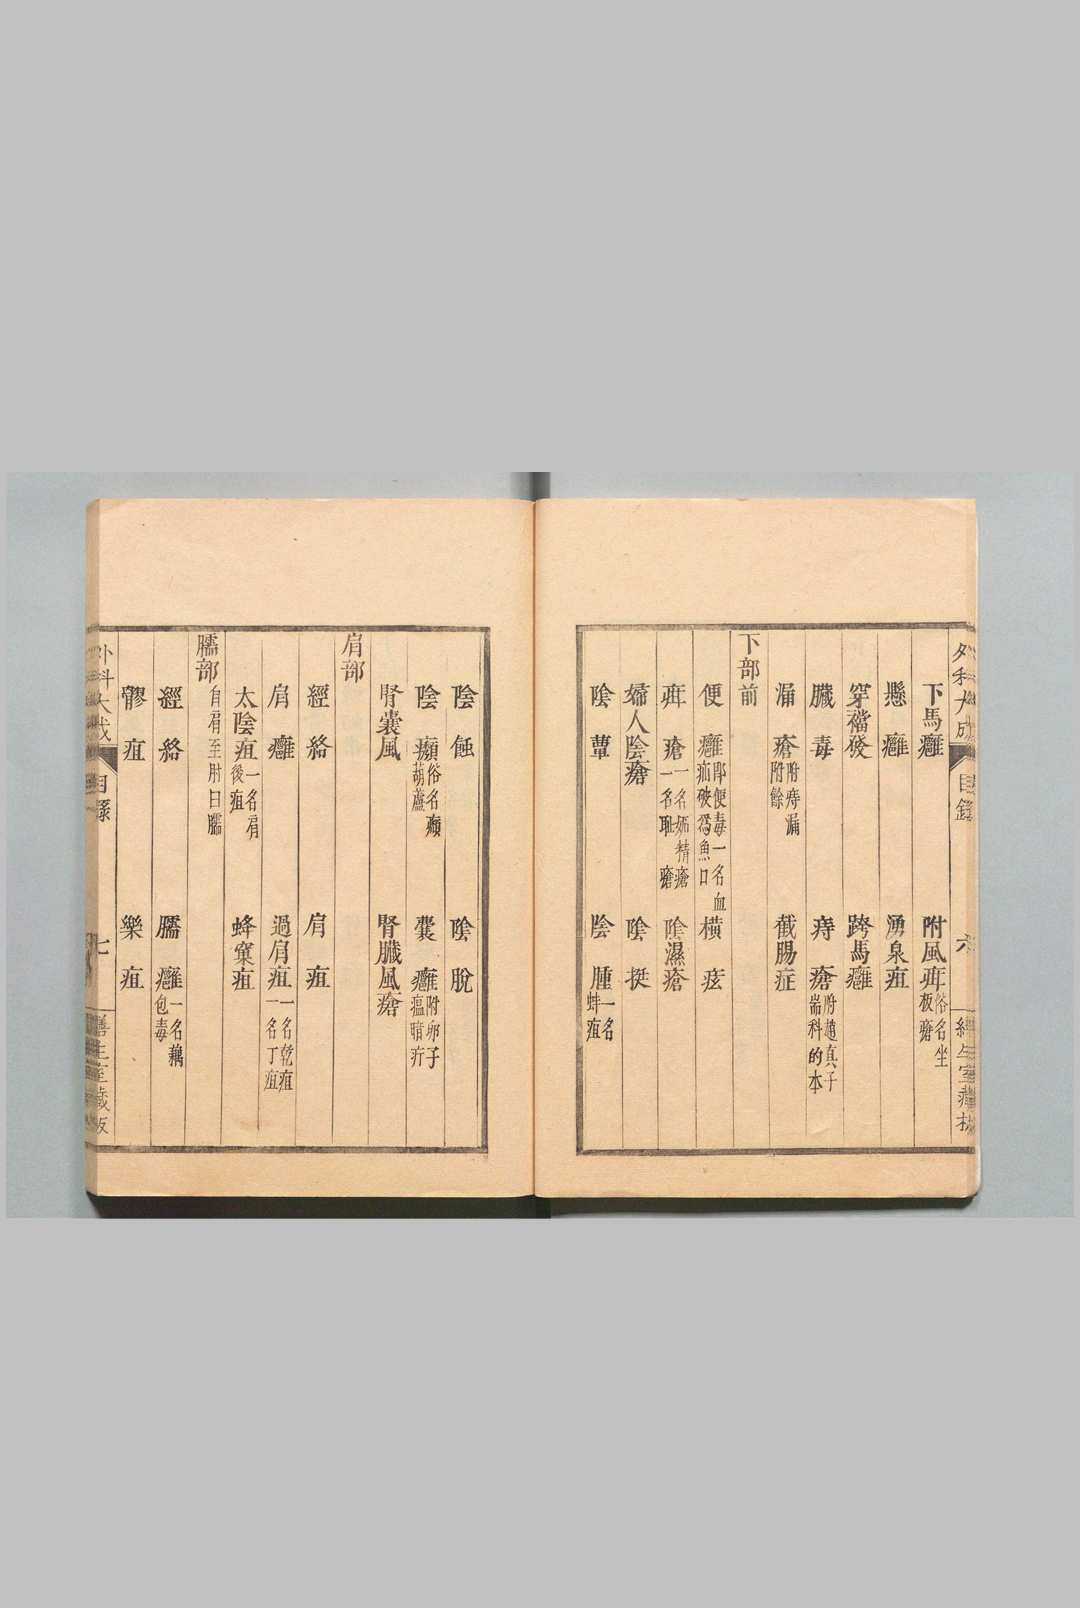 外科大成 目錄 六 繕生室藏板
下馬癰 附風疳俗名坐板瘡
懸癰 湧泉疽
穿襠發 跨馬癰
臟毒 痔瘡附趙真子耑科的本
漏瘡附痔漏附餘 截腸症
下部前
便癰即便毒一名血疝破為魚口 橫痃
疳瘡一名妬精瘡一名恥瘡 陰濕瘡
婦人陰瘡 陰挺
陰蕈 陰腫一名蚌疽
陰蝕 陰脫
陰㿗俗名㿗葫蘆 囊癰附卵子瘟暗疔
腎囊風 腎臟風瘡
肩部
經絡 肩疽
肩癰 過肩疽一名乾疽一名丁疽
太陰疽一名肩後疽 蜂窠疽
臑部自肩至肘曰臑
經絡 臑癰一名藕包毒
髎疽 樂疽
外科大成 目錄 七 繕生室藏板